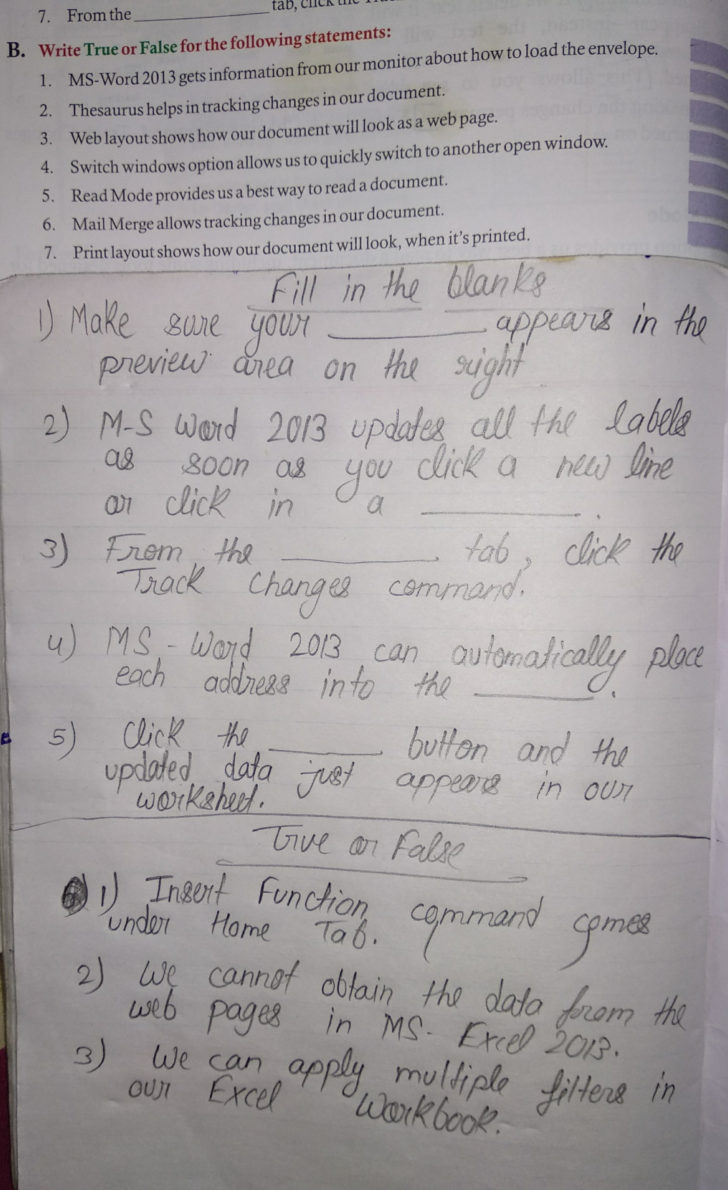 7. From the ____________ tab, click the
B. Write True or False for the following statements:
1. MS-Word 2013 gets information from our monitor about how to load the envelope.
2. Thesaurus helps in tracking changes in our document.
3. Web layout shows how our document will look as a web page.
4. Switch windows option allows us to quickly switch to another open window.
5. Read Mode provides us a best way to read a document.
6. Mail Merge allows tracking changes in our document.
7. Print layout shows how our document will look, when it's printed.
Fill in the blanks
1) Make sure your ____________ appears in the
preview area on the right
2) M-S Word 2013 updates all the labels
as soon as you click a new line
or click in a ____________.
3) From the ____________ tab, click the
Track changes command.
4) MS-Word 2013 can automatically place
each address into the ____________.
5) Click the ____________ button and the
updated data just appears in our
worksheet.
True or False
1) Insert Function command comes
under Home Tab.
2) We cannot obtain the data from the
web pages in MS-Excel 2013.
3) We can apply multiple filters in
our Excel Workbook.